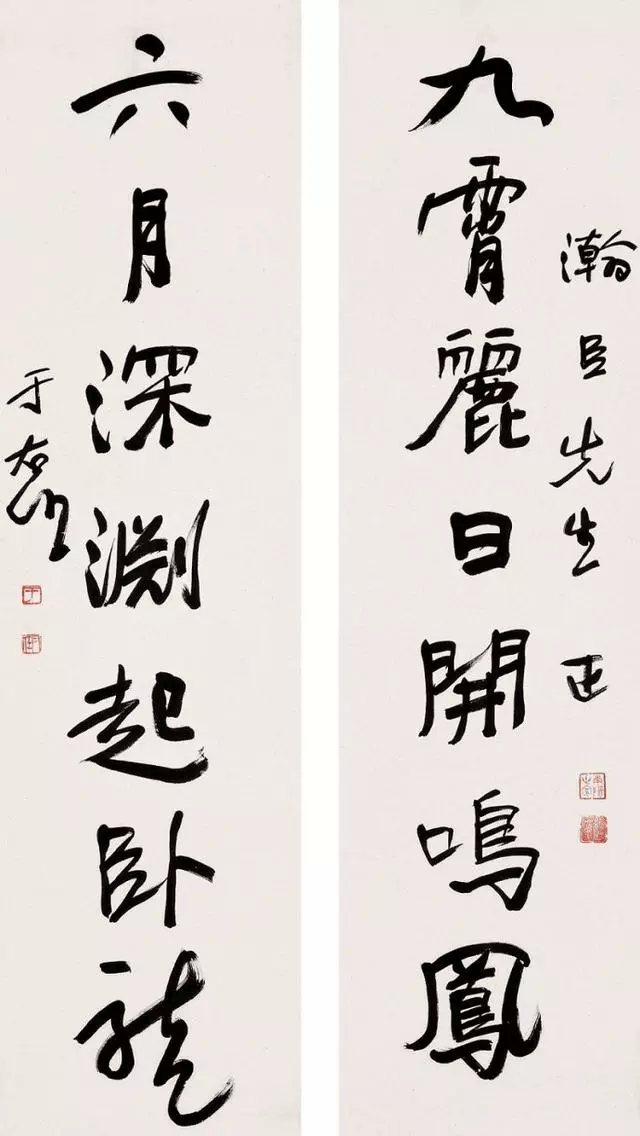 瀚臣先生正
九霄麗日開鳴鳳
六月深淵起卧龍
于右任